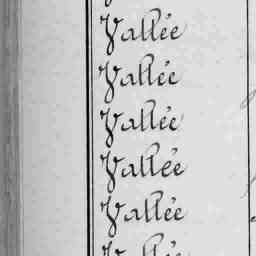 Vallée
Vallée
Vallée
Vallée
Vallée
Vallée